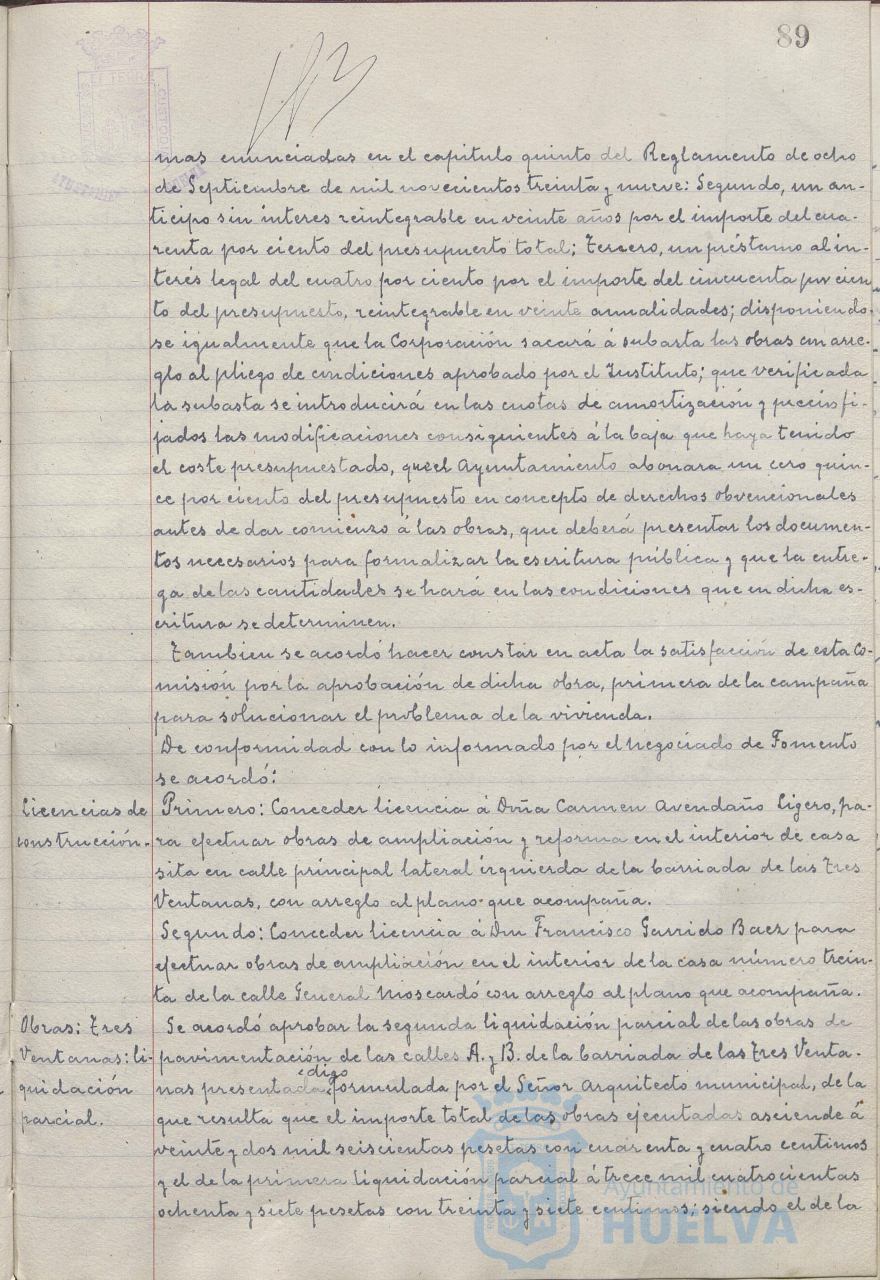 89
mas enunciadas en el capitulo quinto del Reglamento de ocho
de Septiembre de mil novecientos treinta y nueve: Segundo, un an-
ticipo sin interes reintegrable en veinte años por el importe del cua-
renta por ciento del presupuesto total; Tercero, un préstamo al in-
terés legal del cuatro por ciento por el importe del cincuenta por cien
to del presupuesto, reintegrable en veinte annalidades; disponiendo-
se igualmente que la Corporación sacará á subasta las obras con arre-
glo al pliego de condiciones aprobado por el Instituto; que verificada
la subasta se introducirá en las cuotas de amortización y precios fi-
jados las modificaciones consiguientes á la baja que haya tenido
el coste presupuestado, que el Ayuntamiento abonara un cero quin-
ce por ciento del presupuesto en concepto de derechos obvencionales
antes de dar comienzo á las obras, que deberá presentar los documen-
tos necesarios para formalizar la escritura pública y que la entre-
ga de las cantidades se hará en las condiciones que en dicha es-
critura se determinen.
Tambien se acordó hacer constar en acta la satisfacción de esta Co-
misión por la aprobación de dicha obra, primera de la campaña
para solucionar el problema de la vivienda.
De conformidad con lo informado por el negociado de Fomento
se acordó:
Licencias de
construcción.-
Primero: Conceder licencia á Doña Carmen Avendaño Ligero, pa-
ra efectuar obras de ampliación y reforma en el interior de casa
sita en calle principal lateral izquierda de la barriada de las Tres
Ventanas, con arreglo al plano que acompaña.
Segundo: Conceder licencia á Don Francisco Garrido Baez para
efectuar obras de ampliación en el interior de la casa número trein-
ta de la calle General Moscardó con arreglo al plano que acompaña.
Obras: Tres
Ventanas: li-
quidación
parcial.
Se acordó aprobar la segunda liquidación parcial de las obras de
pavimentación de las calles A. y B. de la barriada de las Tres Venta-
digo
nas presentada formulada por el Señor Arquitecto municipal, de la
que resulta que el importe total de las obras ejecutadas asciende á
veinte y dos mil seiscientas pesetas con cuarenta y cuatro centimos
y el de la primera liquidación parcial á trece mil cuatrocientas
ochenta y siete pesetas con treinta y siete centimos; siendo el de la
Ayuntamiento de
HUELVA